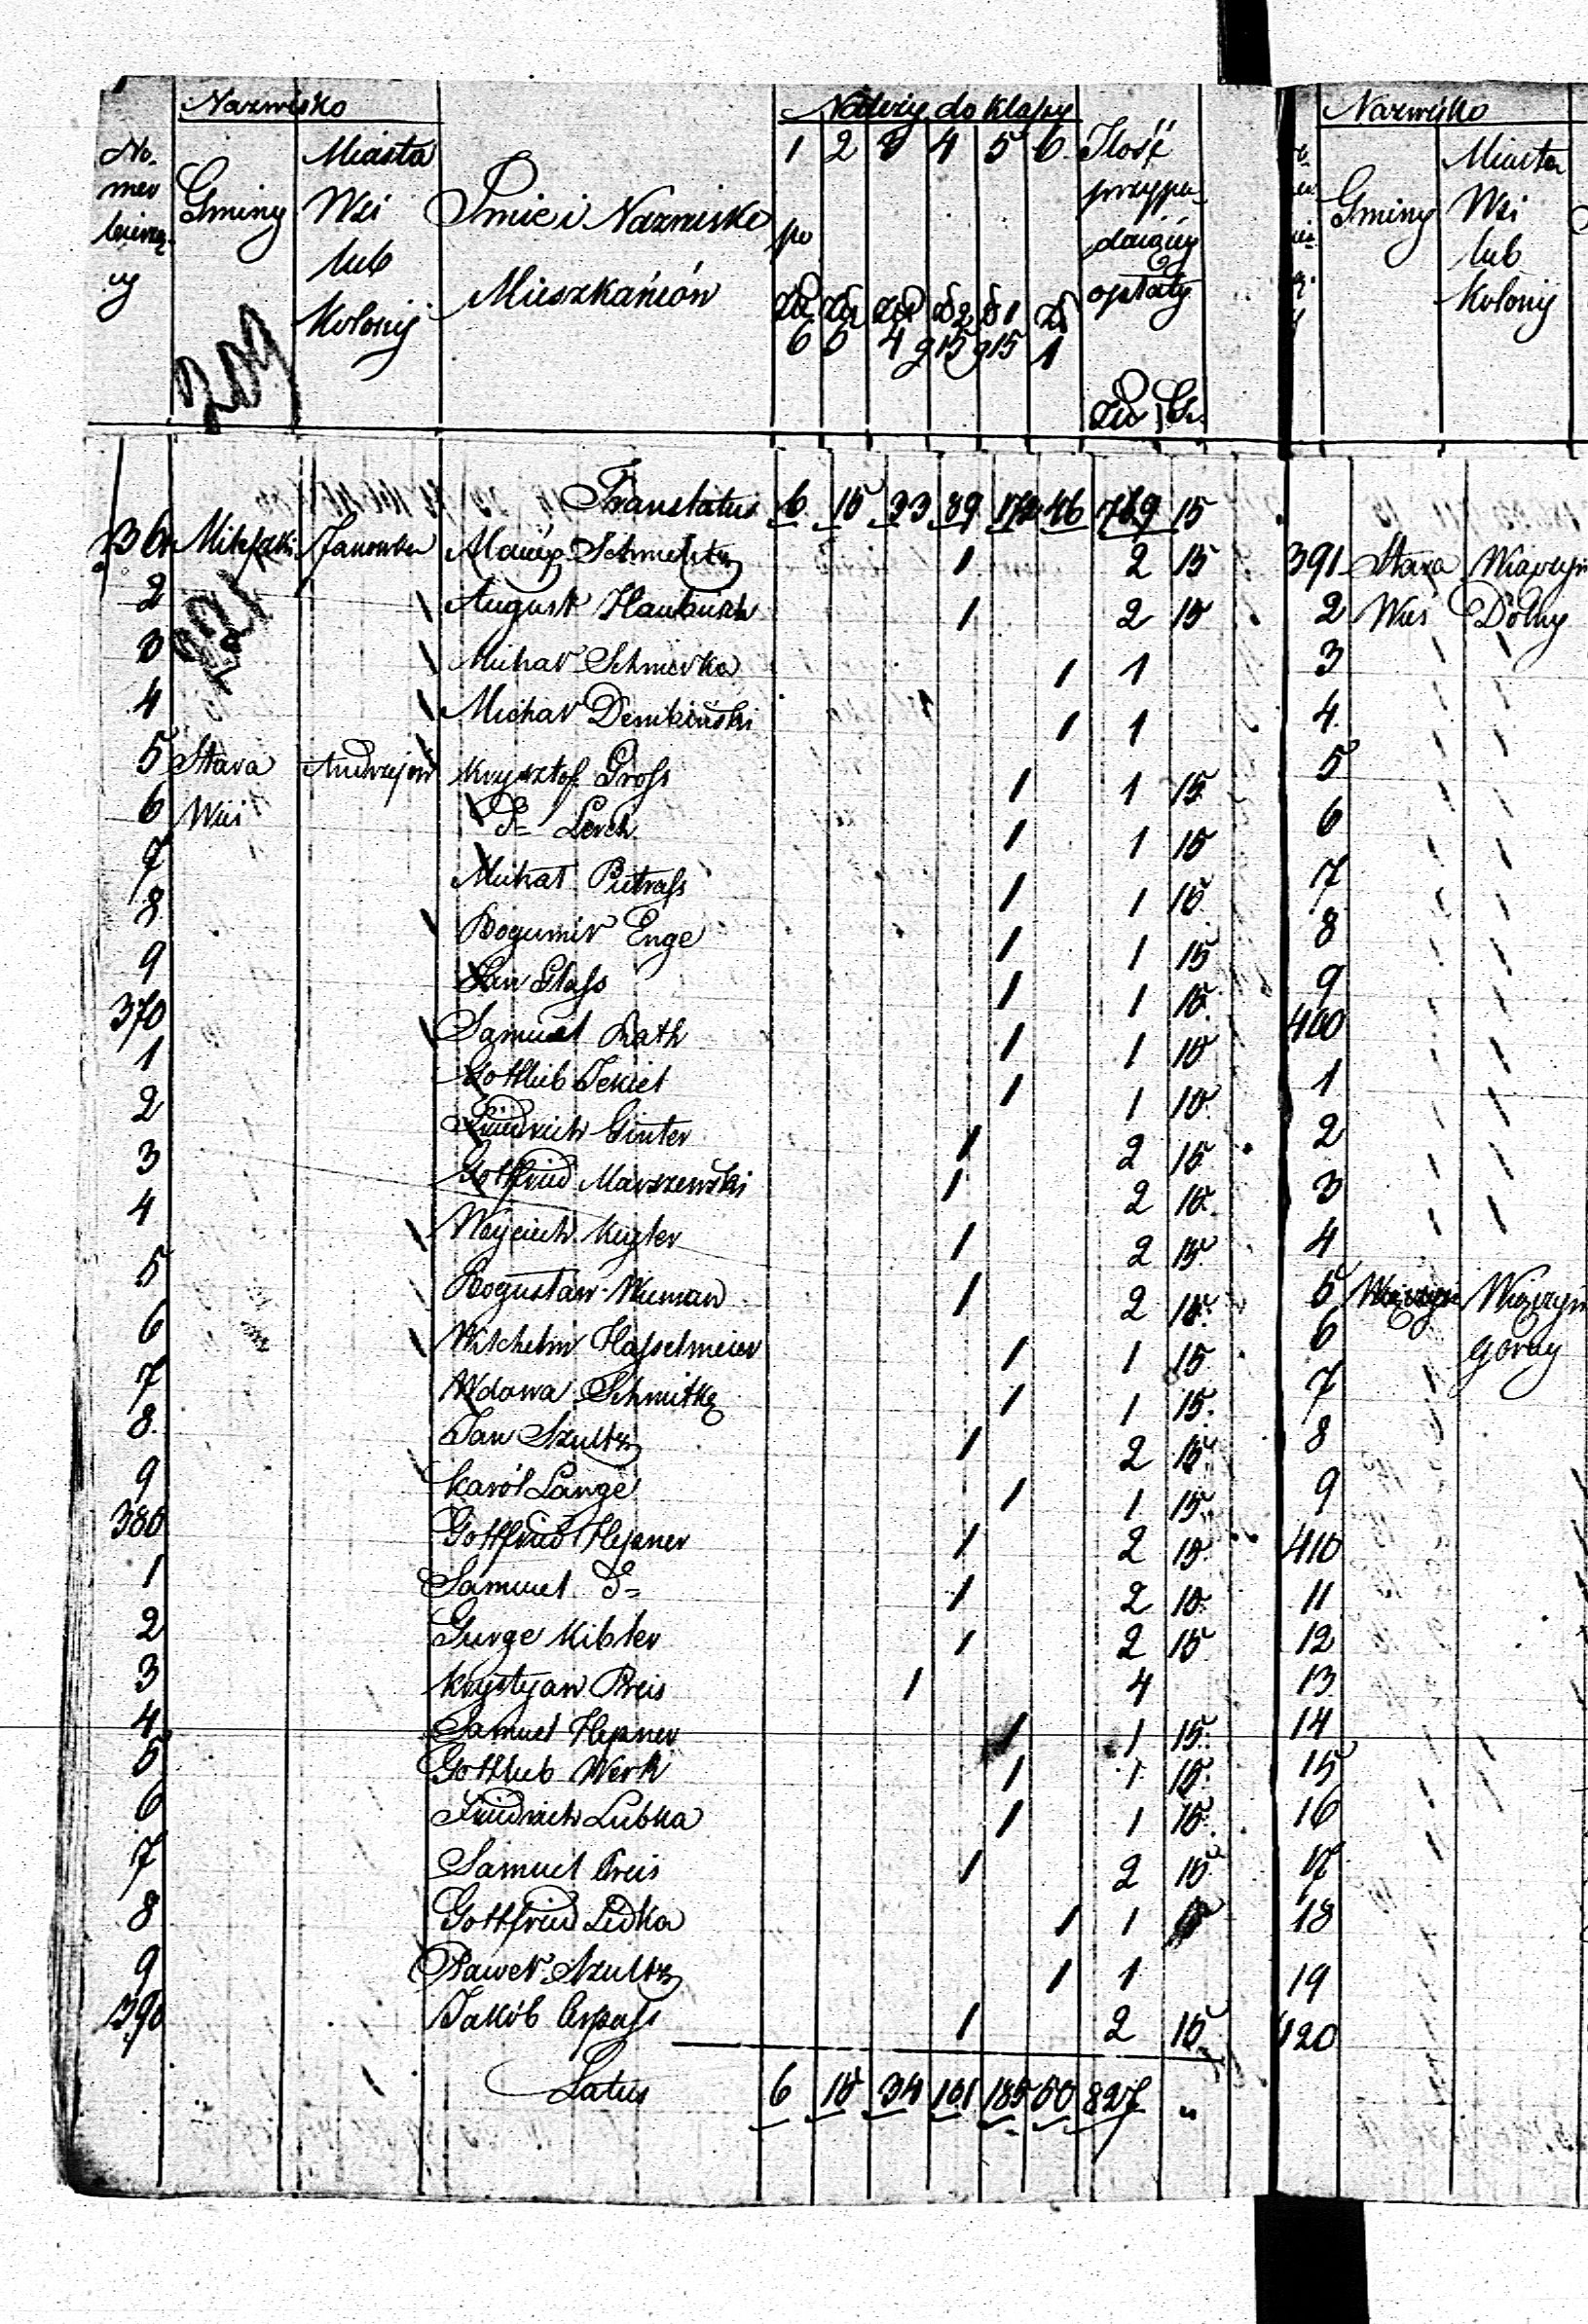 Nazwisko
Należy do klassy
No-
mer
bieżą-
cy
Gminy
Miasta
Wsi
lub
Kolonij
Imie i Nazwisko
Mieszkańców
1 2 3 4 5 6
po
6 6 4 2 15 1 15 1
Ilość
przypa-
daiącey
opłaty
Zł Gr.
Translatus 6 15 33 89 172 46 769 15
361 Janowka Schmeltz 1 2 15
2 August 1 2 15
3 Michał 1 1
4 Michał 1 1
5 Stara Andrzejów Krysztof Gross 1 1 15
6 Wieś D= Lerch 1 1 15
7 Michał Pietrass 1 1 15
8 Bogumir Enge 1 1 15
9 Jan Glass 1 1 15
370 Samuel Rath 1 1 15
1 Gottlieb Jekiel 1 1 15
2 Friedrich Ginter 1 2 15
3 Gottfried Marszewski 1 2 15
4 Woyciech Kugler 1 2 15
5 Bogusław Wuman 1 2 15
6 Wilchelm Hasselmeier 1 1 15
7 Wdowa Schmitke 1 1 15
8 Jan Szultz 1 2 15
9 Karól Lange 1 1 15
380 Gottfried Hepner 1 2 15
1 Samuel D= 1 2 15
2 Gurge Kibler 1 2 15
3 Krystyan Preis 1 4
4 Samuel Hepner 1 1 15
5 Gottlieb Werk 1 1 15
6 Friedrich Lubka 1 1 15
7 Samuel Preis 1 2 15
8 Gottfried Lidka 1 1
9 Paweł Szultz 1 1
390 Jakób 1 2 15
Latus 6 15 34 101 185 50 827 "
Nazwisko
Gminy
Miasta
Wsi
lub
Kolonij
391 Stara Wiączyń
2 Wieś Dolny
3
4
5
6
7
8
9
400
1
2
3
4
5 Wiączyń
6 górny
7
8
9
410
11
12
13
14
15
16
17
18
19
420